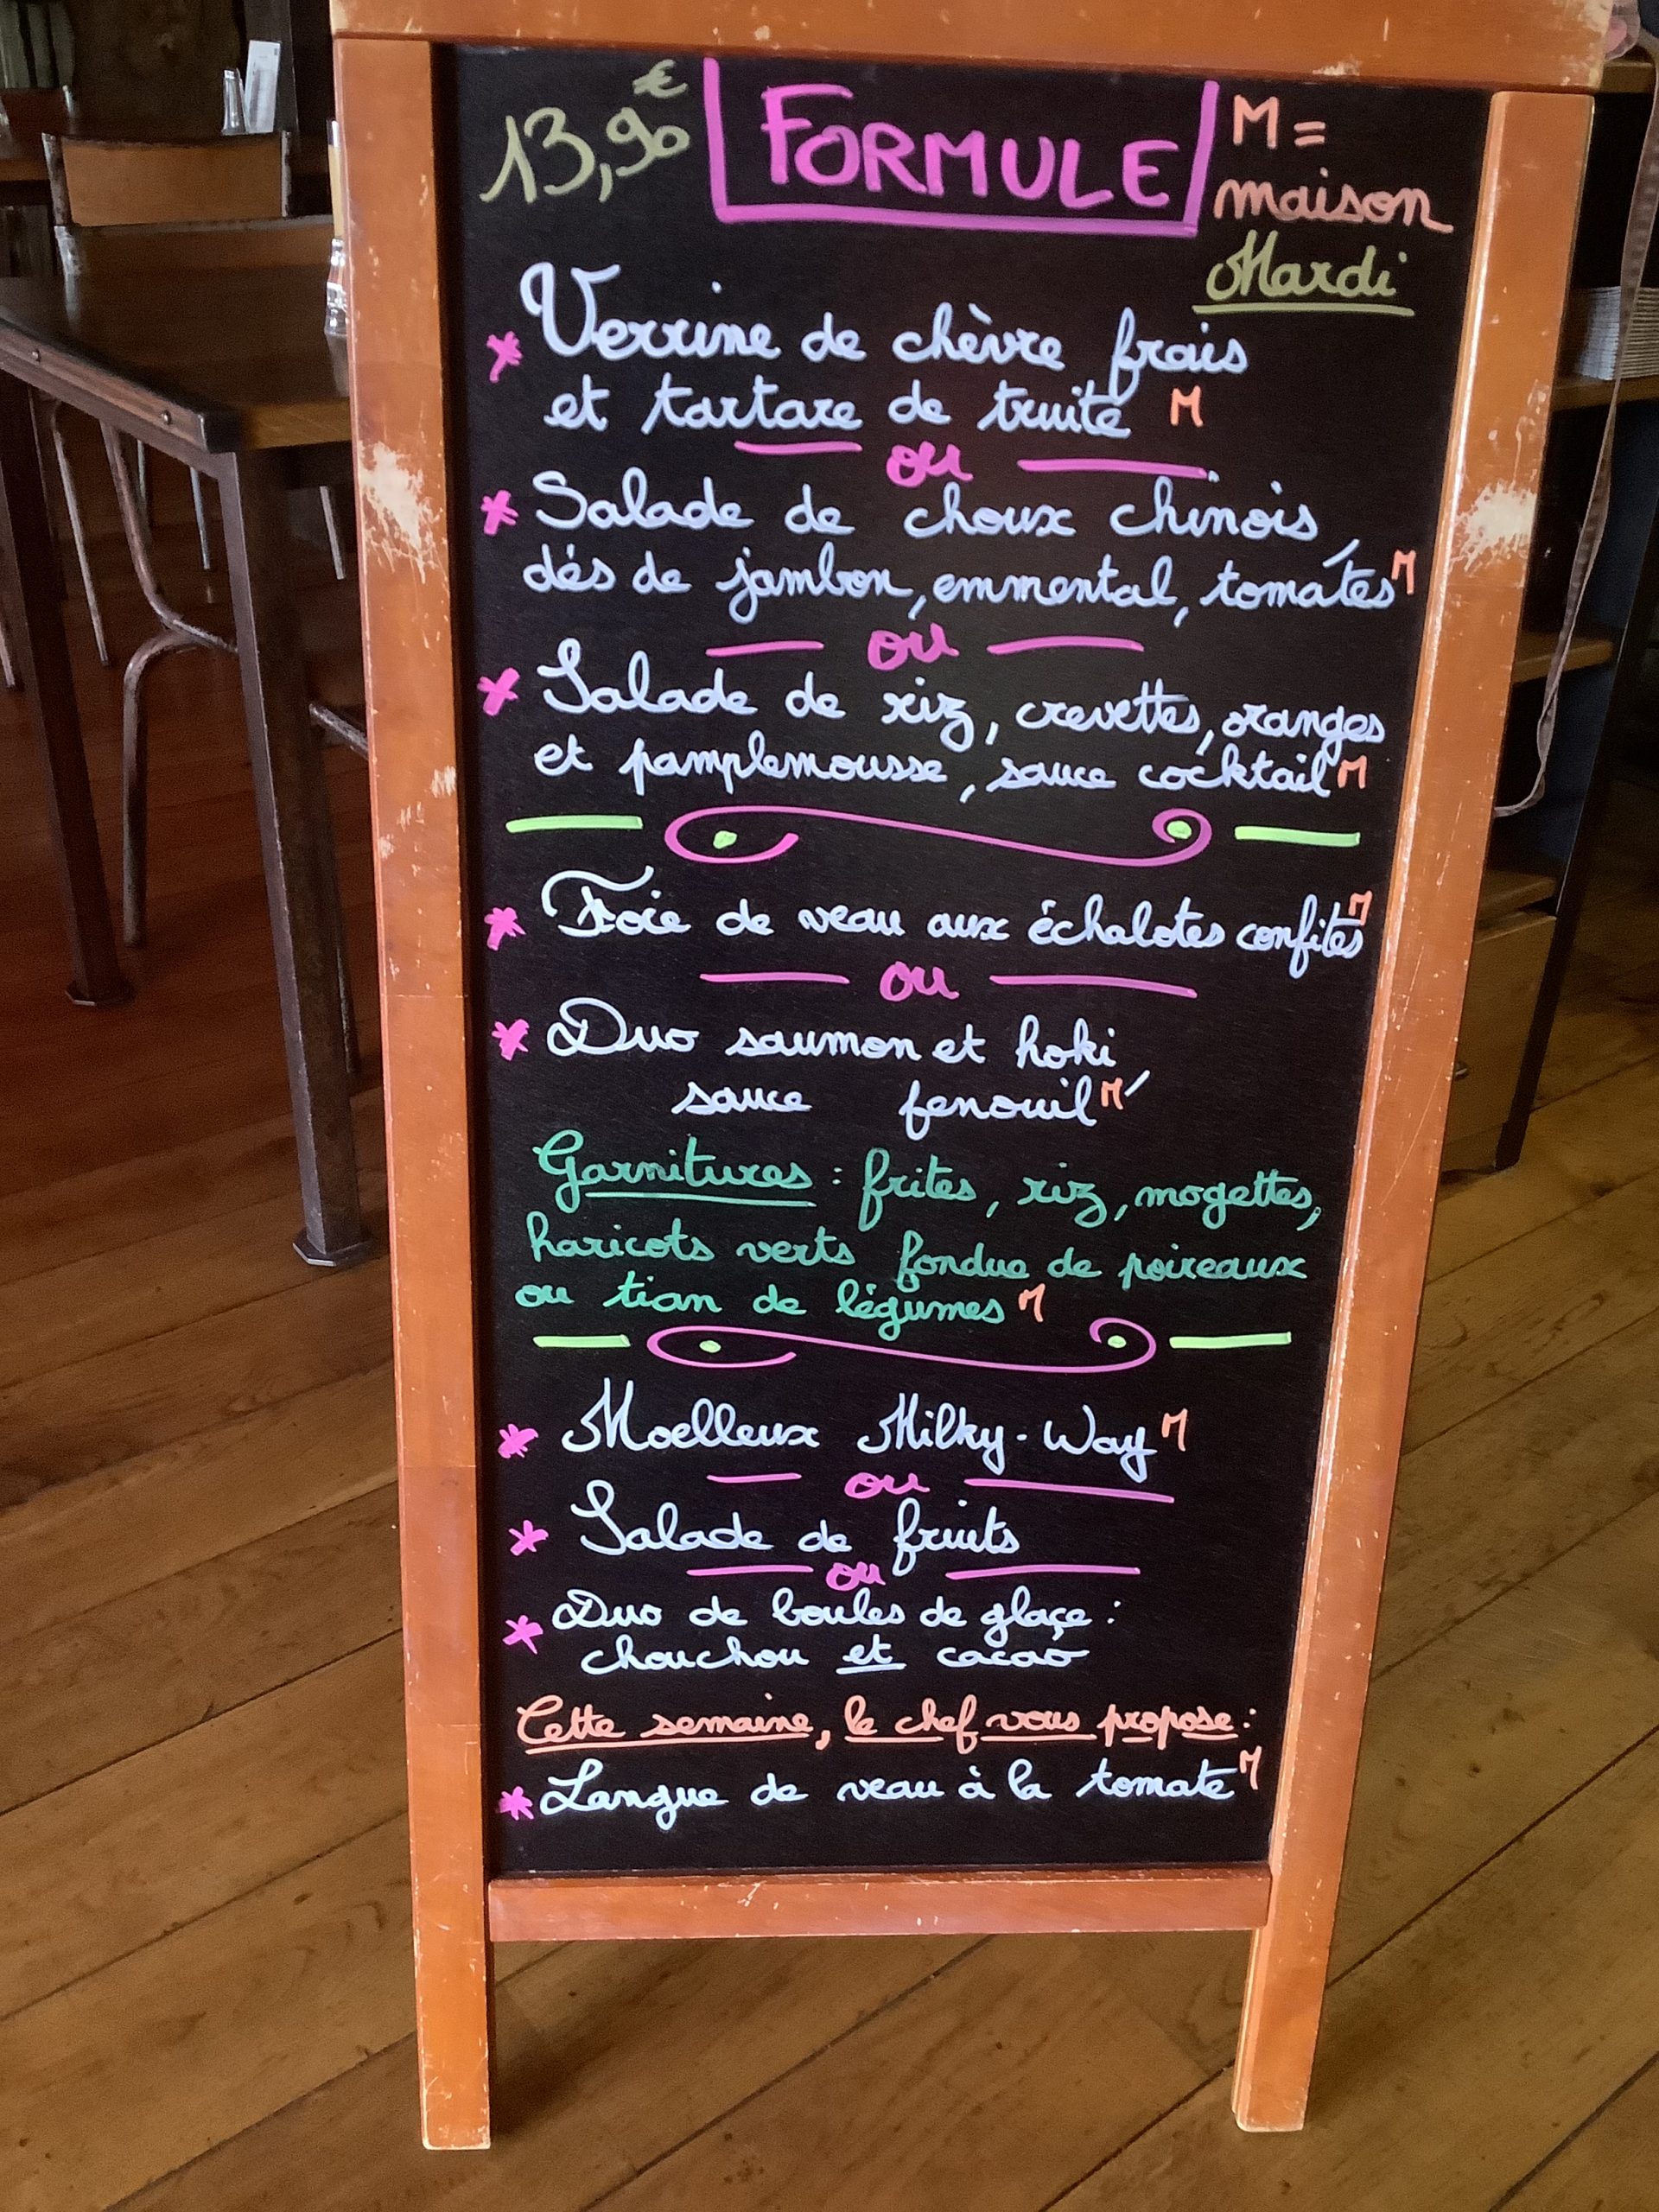 13,90€
FORMULE
M =
maison
Mardi
* Verrine de chèvre frais
et tartare de truite M
ou
* Salade de choux chinois,
dés de jambon, emmental, tomates M
ou
* Salade de riz, crevettes, oranges
et pamplemousse, sauce cocktail M
* Foie de veau aux échalotes confites M
ou
* Duo saumon et hoki,
sauce fenouil M
Garnitures : frites, riz, mogettes,
haricots verts fondue de poireaux
ou tian de légumes M
* Moelleux Milky-Way M
ou
* Salade de fruits
ou
* Duo de boules de glaçe :
chouchou et cacao
Cette semaine, le chef vous propose :
* Langue de veau à la tomate M